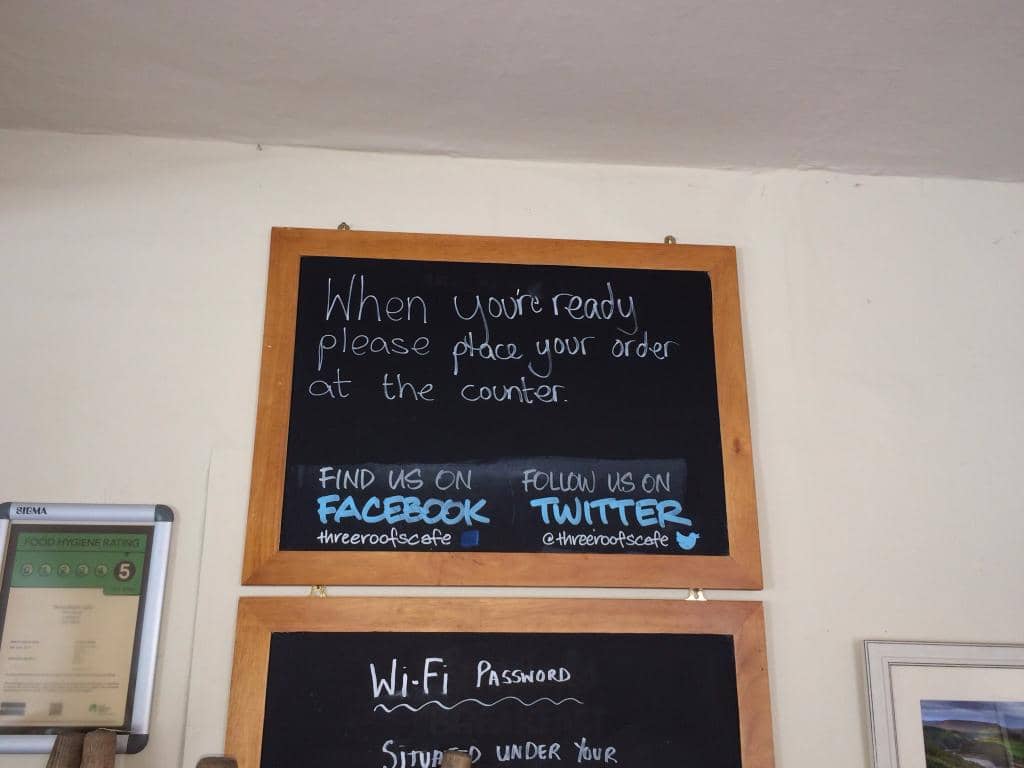 When you're ready
please place your order
at the counter.
FIND US ON
FACEBOOK
threeroofscafe
FOLLOW US ON
TWITTER
@threeroofscafe
SIGMA
FOOD HYGIENE RATING
5
Wi-Fi PASSWORD
SITUATED UNDER YOUR